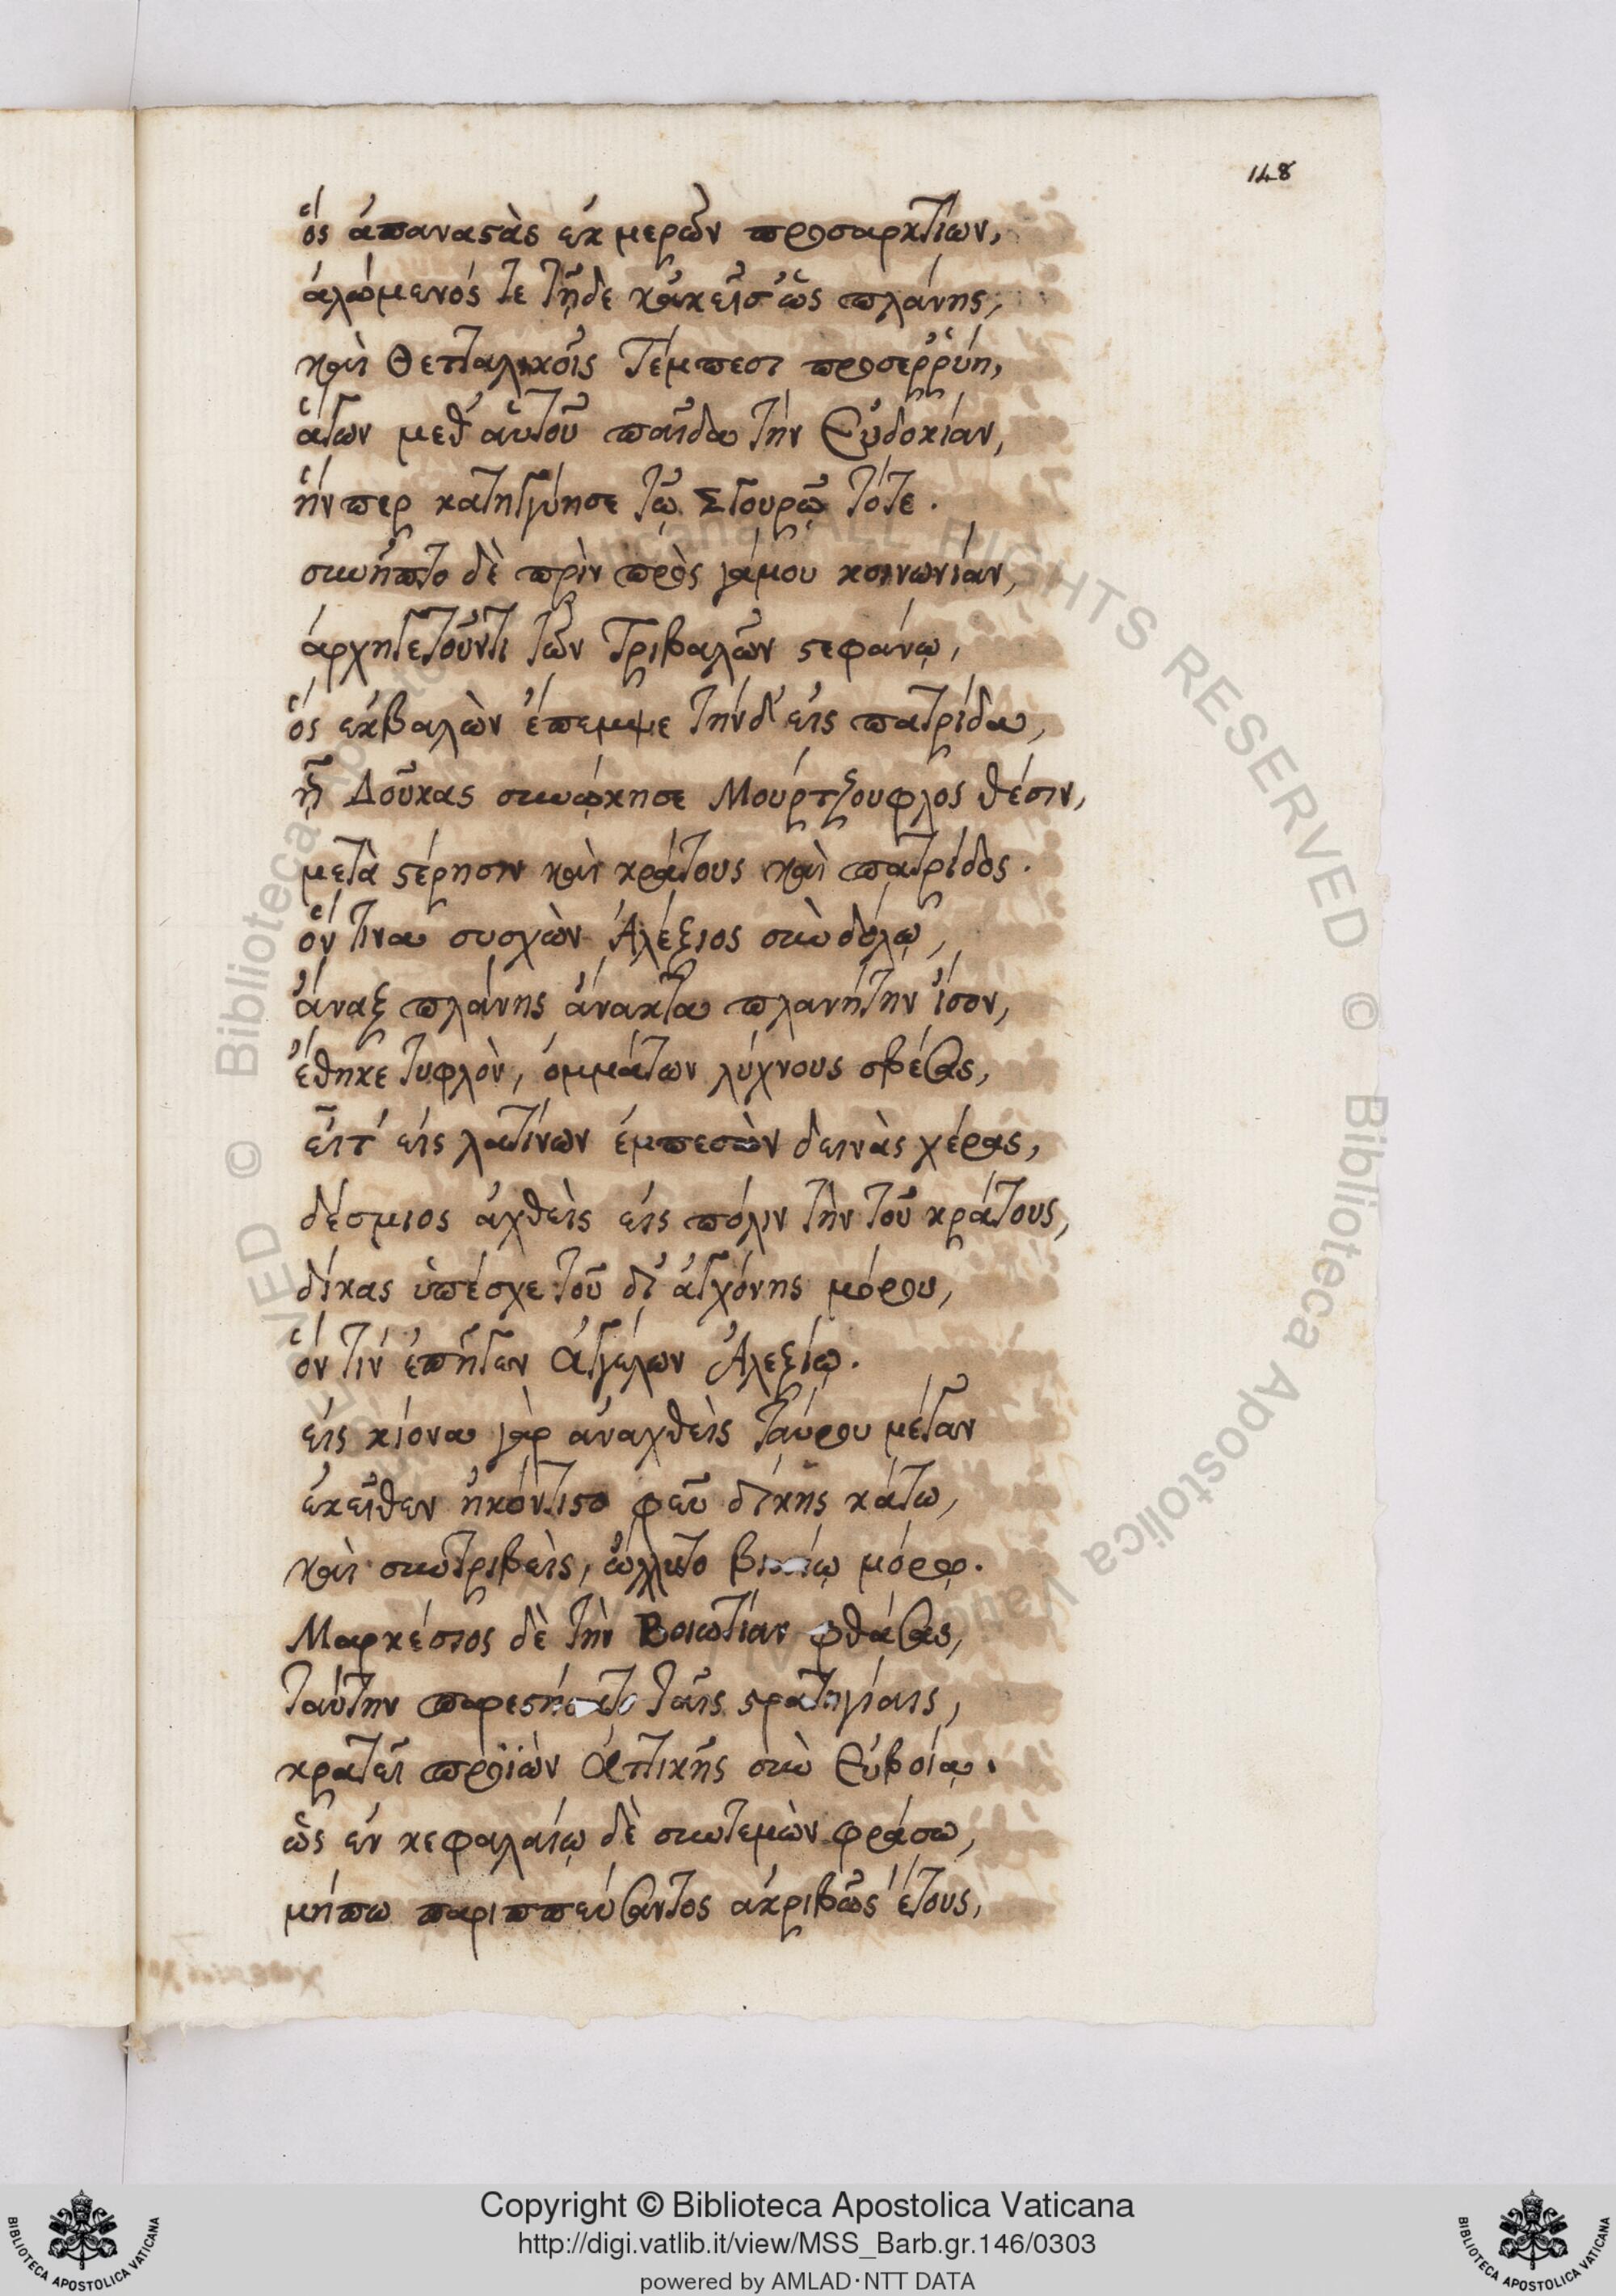 148
ὃς ἀπαναστὰς ἐκ μερῶν προσαρκτίων,
ἀλώμενός τε τῇδε κἀκεῖσ' ὡς πλάνης,
καὶ Θετταλικοῖς Τέμπεσι προσεῤῥύη,
ἄγων μεθ' αὑτοῦ παῖδα τὴν Εὐδοκίαν,
ἥνπερ κατηγγύησε τῷ Σγουρῷ τότε.
συνῆπτο δὲ πρὶν πρὸς γάμου κοινωνίαν,
ἀρχηγετοῦντι τῶν Τριβαλῶν στεφάνῳ,
ὃς ἐκβαλὼν ἔπεμψε τήνδ' εἰς πατρίδα,
ᾗ Δούκας συνῴκησε Μούρτζουφλος θέσιν,
μετὰ στέρησιν καὶ κράτους καὶ πατρίδος.
ὅν τινα συσχὼν Ἀλέξιος σὺν δόλῳ,
ἄναξ πλάνης ἄνακτα πλανήτην ἴσον,
ἔθηκε τυφλὸν, ὀμμάτων λύχνους σβέσας,
εἶτ' εἰς λατίνων ἐμπεσὼν δεινὰς χέρας,
δέσμιος ἀχθεὶς εἰς πόλιν τὴν τοῦ κράτους,
δίκας ὑπέσχε τοῦ δι' ἀγχόνης μόρου,
ὅν τιν' ἐπῆγεν Ἀγγέλων Ἀλεξίῳ.
εἰς κίονα γὰρ ἀναχθεὶς Ταύρου μέγαν
ἐκεῖθεν ἠκόντιστο φεῦ δίκης κάτω,
καὶ συντριβεὶς, ὤλλυτο βιαίῳ μόρῳ.
Μαρκέσιος δὲ τὴν Βοιωτίαν φθάσας,
ταύτην παρεστήσατο ταῖς στρατηγίαις,
κρατεῖ προϊὼν Ἀττικῆς σὺν Εὐβοίᾳ.
ὡς ἐν κεφαλαίῳ δὲ συντεμὼν φράσω,
μήπω παριππεύσαντος ἀκριβῶς ἔτους,
Copyright © Biblioteca Apostolica Vaticana
http://digi.vatlib.it/view/MSS_Barb.gr.146/0303
powered by AMLAD·NTT DATA